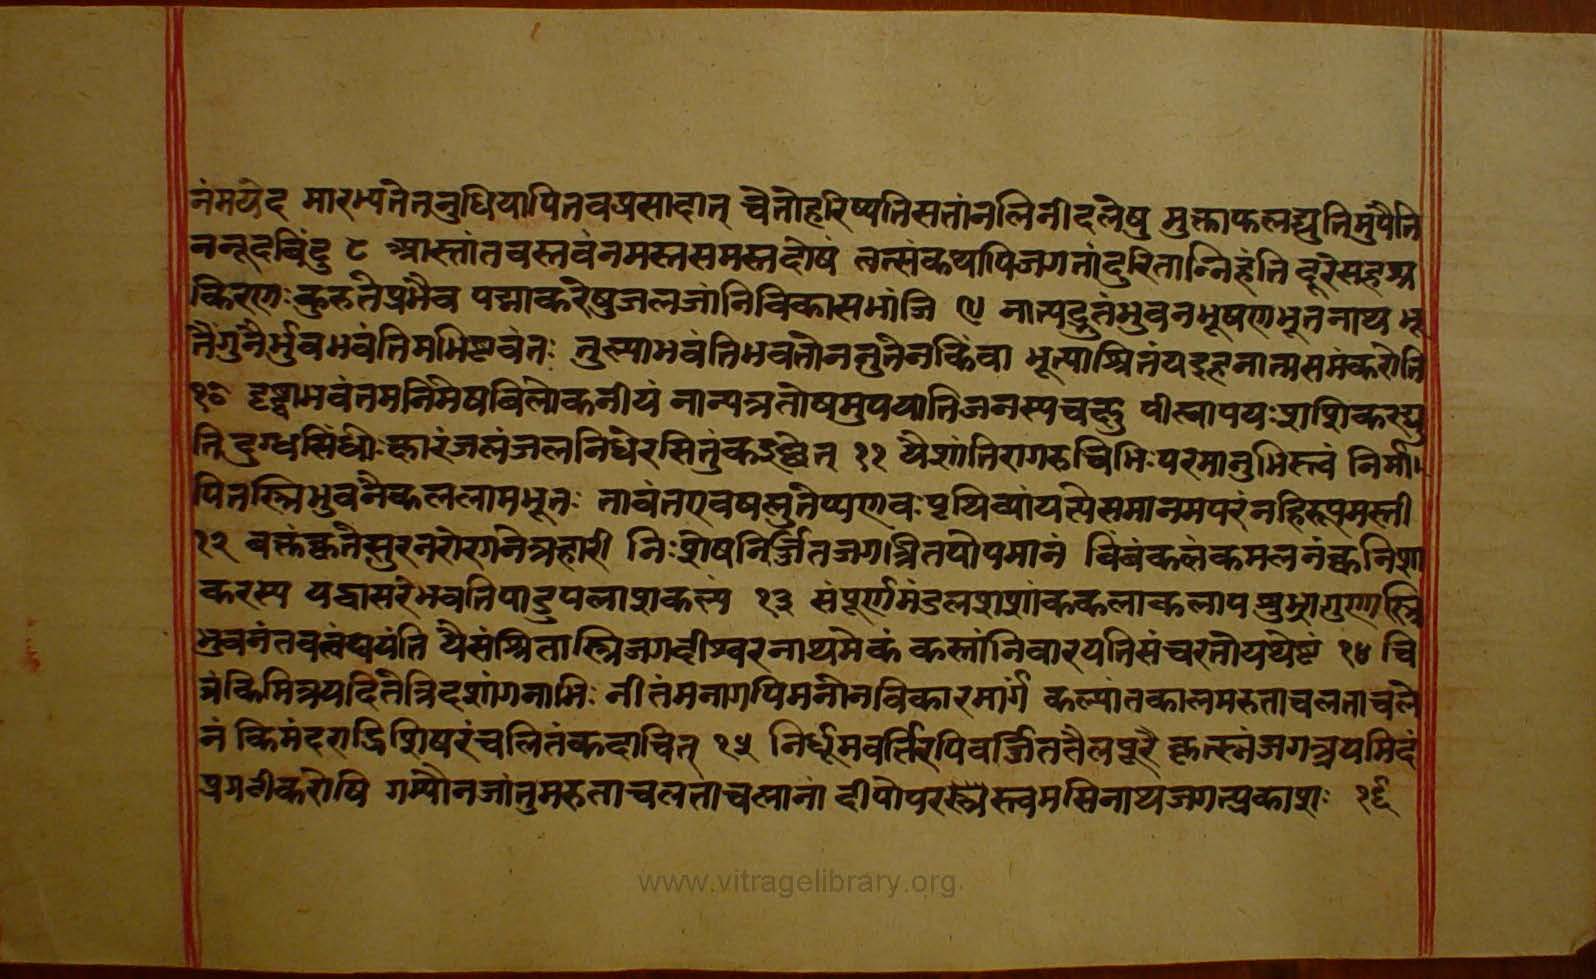 नंमयेद मारभ्यतेतनुधियापितवप्रसादात् चेतोहरिष्यतिसतांनलिनीदलेषु मुक्ताफलद्युतिमुपैति
ननूदबिंदु ८ आस्तांतवस्तवंनमस्तसमस्तदोषं त्वत्संकथापिजगतांदुरितान्निहंति दूरेसहश्र
किरणःकुरुतेप्रभैव पद्माकरेषुजलजांनिविकासभांजि ९ नात्यद्भुतंभुवनभूषणभूतनाथ भू
तैगुनैर्भुवभवंतिमभिष्टवंतः तुल्याभवंतिभवतोननुतेनकिंवा भूत्याश्रितंयइहनात्मसमंकरोति
१० दृष्ट्वाभवंतमनिमेषविलोकनीयं नान्यत्रतोषमुपयातिजनस्यचक्षु पीत्वापयःशशिकरद्यु
तिदुग्धसिंधोःक्षारंजलंजलनिधेरसितुंकइछेत् ११ यैशांतिरागरुचिभिःपरमानुभिस्त्वं निर्मा
पितस्त्रिभुवनैकललामभूतः तावंतएवषलुतेप्यणवःपृथिव्यां यत्तेसमानमपरंनहिरूपमस्ती
१२ वक्तंक्वतेसुरनरोरगनेत्रहारी निःशेषनिर्ज्जितजगत्रितयोपमानं बिंबंकलंकमलनंक्वनिशा
करस्य यद्वासरेभवतिपांडुपलाशकल्पं १३ संपूर्णमंडलशशांककलाकलाप शुभ्रागुणास्त्रि
भुवनंतवलंघयंति येसंश्रितास्त्रिजगदीश्वरनाथमेकं कस्तांनिवारयतिसंचरतोयथेष्टं १४ चि
त्रंकिमित्रयदितेत्रिदशांगनाभिः नीतंमनागपिमनोनविकारमार्गं कल्पांतकालमरुताचलताचले
नं किंमंदराद्रिशिषरंचलितंकदाचित् १५ निर्धूमवर्त्तिरपिवर्जिततैलपूरै कृत्स्नंजगत्त्रयमिदं
प्रगटीकरोषि गम्योनजांतुमरुताचलताचलानां दीपोपरस्त्वमसिनाथजगत्प्रकाशः १६
www.vitragelibrary.org